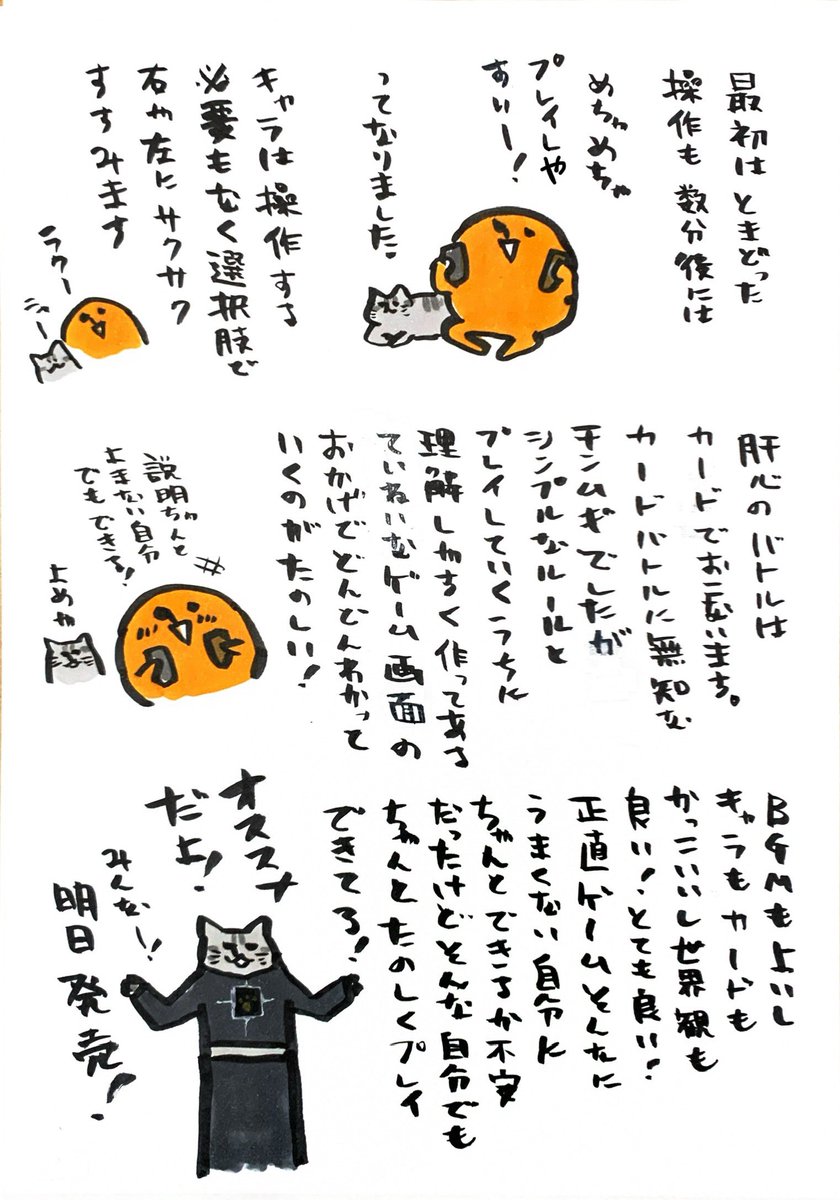 最初は とまどった
操作も 数分後には
めちゃめちゃ
プレイしや
すいー!
ってなりました
キャラは操作する
必要もなく選択肢で
右や左にサクサク
すすみます
ラクー
ニャー
肝心のバトルは
カードでおこないます。
カードバトルに無知な
チンムギでしたが
シンプルなルールと
プレイしていくうちに
理解しやすく作ってある
ていねいなゲーム画面の
おかげでどんどんわかって
いくのがたのしい!
説明ちゃんと
よまない自分
でもできる!
よめや
BGMもよいし
キャラもカードも
かっこいいし世界観も
良い!とても良い!
正直ゲームそんなに
うまくない自分に
ちゃんとできるか不安
だったけどそんな自分でも
ちゃんとたのしくプレイ
できてる!
オススメ
だよ!
みんなー!
明日発売!